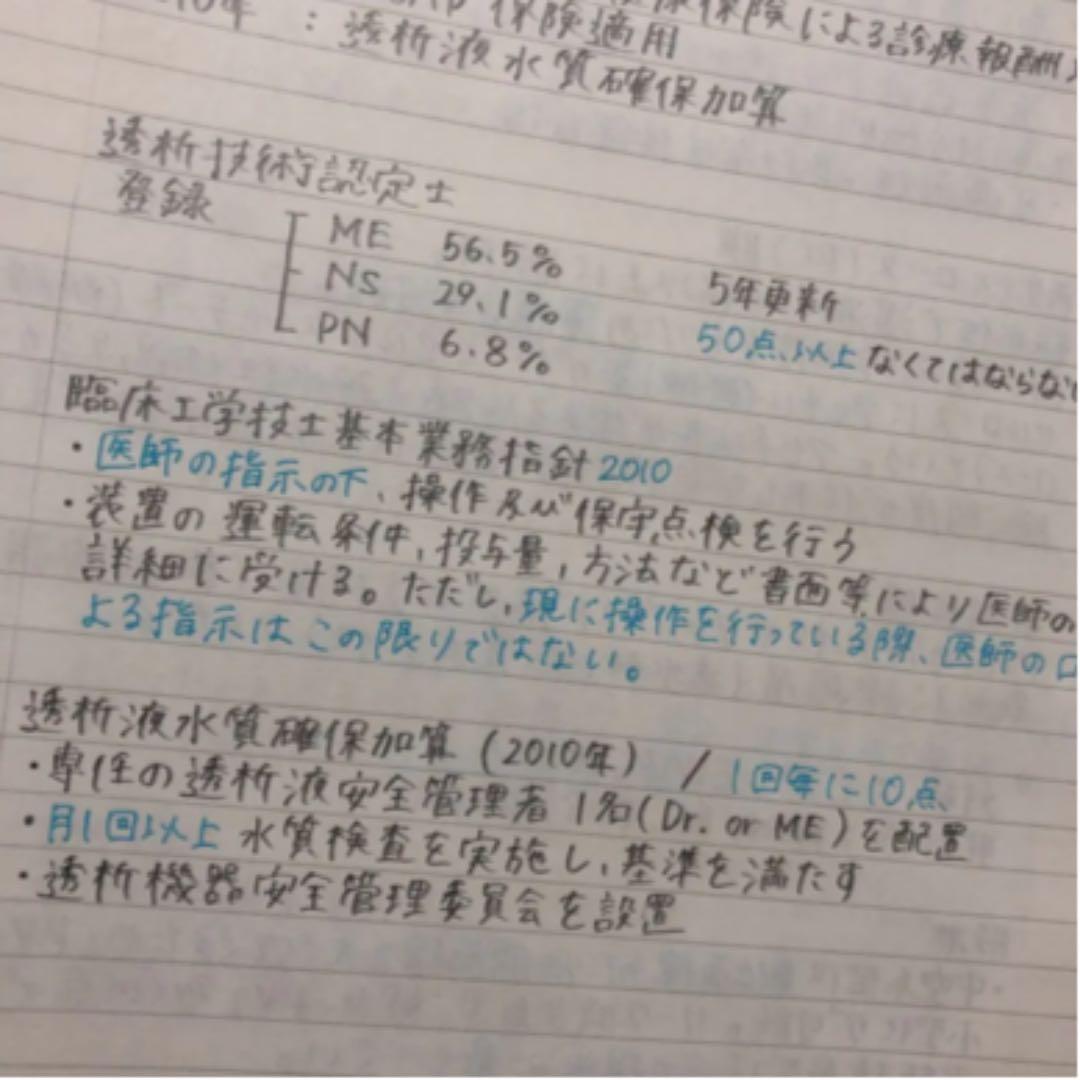 保険による診療報酬
保険適用
10年 : 透析液水質確保加算
透析技術認定士
登録
ME 56.5%
Ns 29.1% 5年更新
PN 6.8% 50点以上なくてはならない
臨床工学技士基本業務指針2010
・医師の指示の下、操作及び保守点検を行う
・装置の運転条件,投与量,方法など書面等により医師の
詳細に受ける。ただし,現に操作を行っている際、医師の口
よる指示はこの限りではない。
透析液水質確保加算(2010年) / 1回毎に10点
・専任の透析液安全管理者 1名(Dr. or ME)を配置
・月1回以上 水質検査を実施し,基準を満たす
・透析機器安全管理委員会を設置